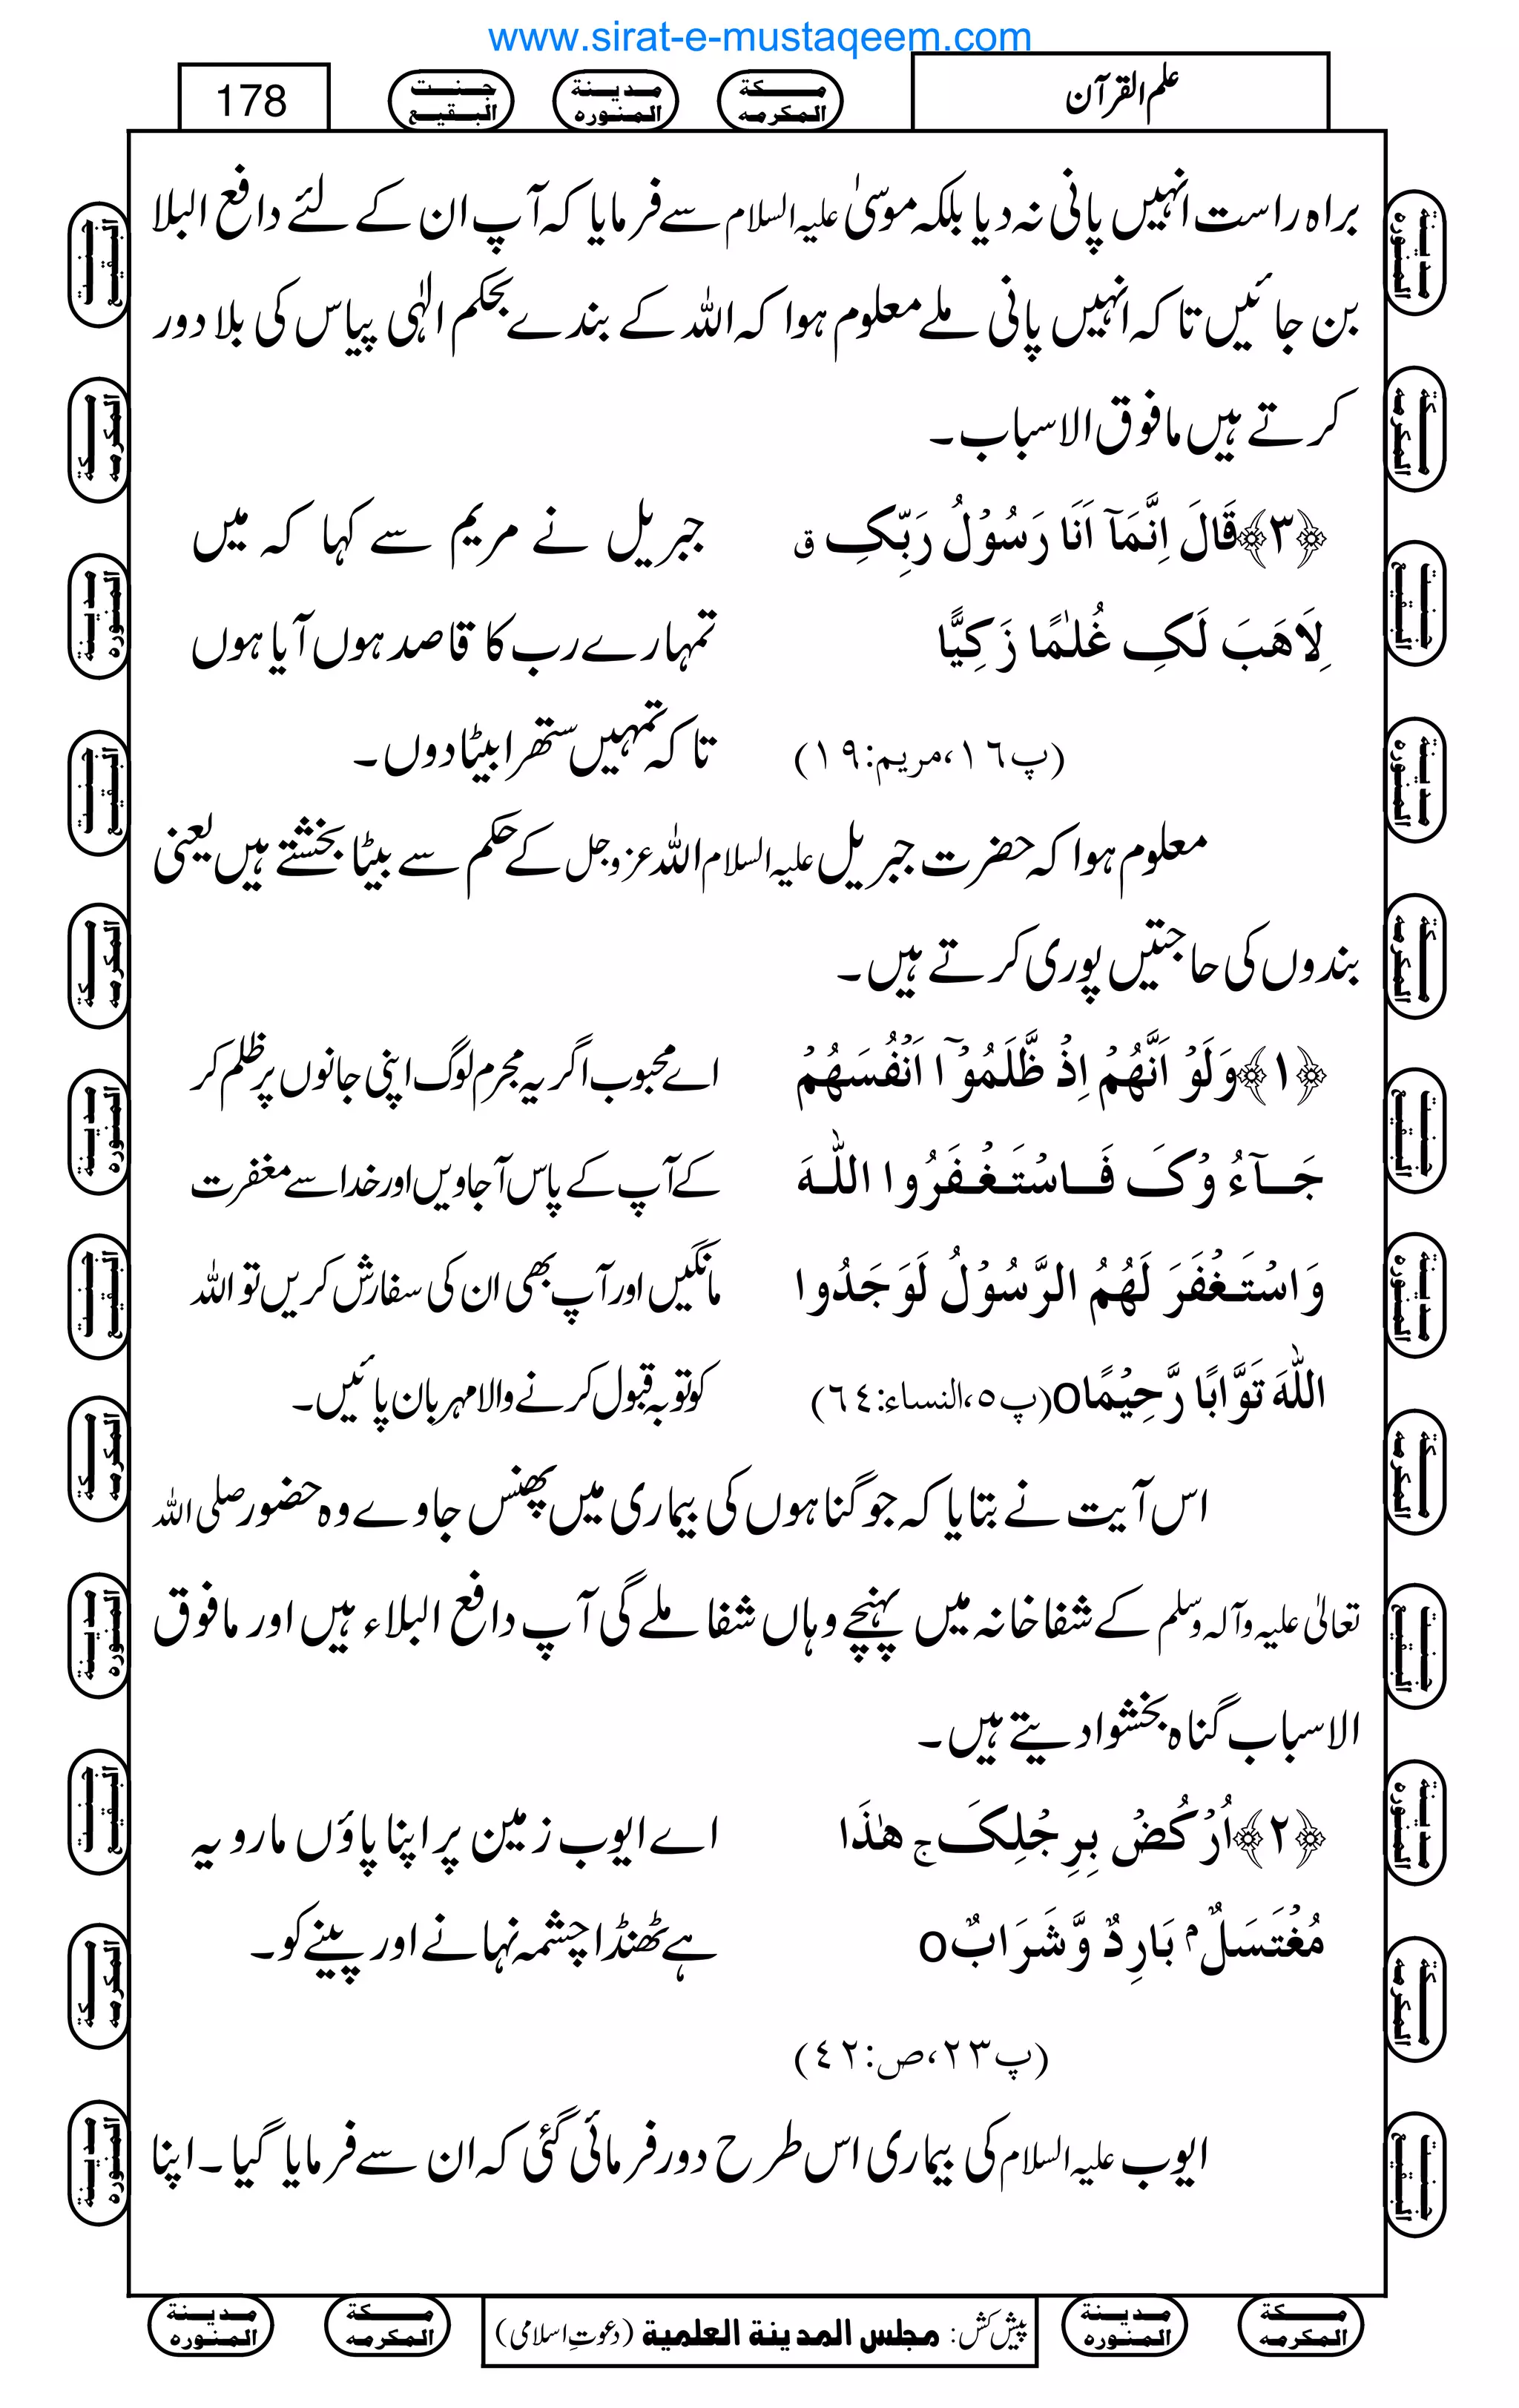 www.sirat-e-mustaqeem.com
علم القرآن
مکة المکرمه
مدینة المنوره
جنت البقیع
178
براہ راست انہیں پانی نہ دیا بلکہ موسیٰ علیہ السلام سے فرمایا کہ آپ ان کے لئے دافع البلا
بن جائیں تاکہ انہیں پانی ملے معلوم ہوا کہ اللہ کے بندے بحکم الٰہی پیاس کی بلا دور
کرتے ہیں مافوق الاسباب۔
﴿٣﴾قَالَ اِنَّمَآ اَنَا رَسُوْلُ رَبِّکِ ق
لِاَهَبَ لَکِ غُلٰمًا زَکِیًّا
(پ١٦،مریم:١٩)
جبریل نے مریم سے کہا کہ میں
تمہارے رب کا قاصد ہوں آیا ہوں
تاکہ تمہیں ستھرا بیٹا دوں۔
معلوم ہوا کہ حضرت جبریل علیہ السلام اللہ عزوجل کے حکم سے بیٹا بخشتے ہیں یعنی
بندوں کی حاجتیں پوری کرتے ہیں۔
﴿١﴾وَلَوْ اَنَّهُمْ اِذْ ظَّلَمُوْٓا اَنْفُسَهُمْ
جَآءُ وْکَ فَاسْتَغْفَرُوا اللّٰهَ
وَاسْتَغْفَرَ لَهُمُ الرَّسُوْلُ لَوَجَدُوا
اللّٰهَ تَوَّابًا رَّحِیْمًاo(پ٥،النساء:٦٤)
اے محبوب اگر یہ مجرم لوگ اپنی جانوں پر ظلم کر
کے آپ کے پاس آجاویں اور خدا سے مغفرت
مانگیں اور آپ بھی ان کی سفارش کریں تو اللہ
کو توبہ قبول کرنے والا مہربان پائیں۔
اس آیت نے بتایا کہ جو گناہوں کی بیماری میں پھنس جاوے وہ حضور صلی اللہ
تعالیٰ علیہ وآلہ وسلم کے شفاخانہ میں پہنچے وہاں شفا ملے گی آپ دافع البلاء ہیں اور مافوق
الاسباب گناہ بخشوا دیتے ہیں۔
﴿٢﴾اُرْکُضْ بِرِجْلِکَ ج هٰذَا
مُغْتَسَلٌ م بَارِدٌ وَّ شَرَابٌo
(پ٢٣،ص:٤٢)
اے ایوب زمین پر اپنا پاؤں مارو یہ
ہے ٹھنڈا چشمہ نہانے اور پینے کو۔
ایوب علیہ السلام کی بیماری اس طرح دور فرمائی گئی کہ ان سے فرمایا گیا۔ اپنا
پیش کش: مجلس المدینة العلمیة (دعوتِ اسلامی)